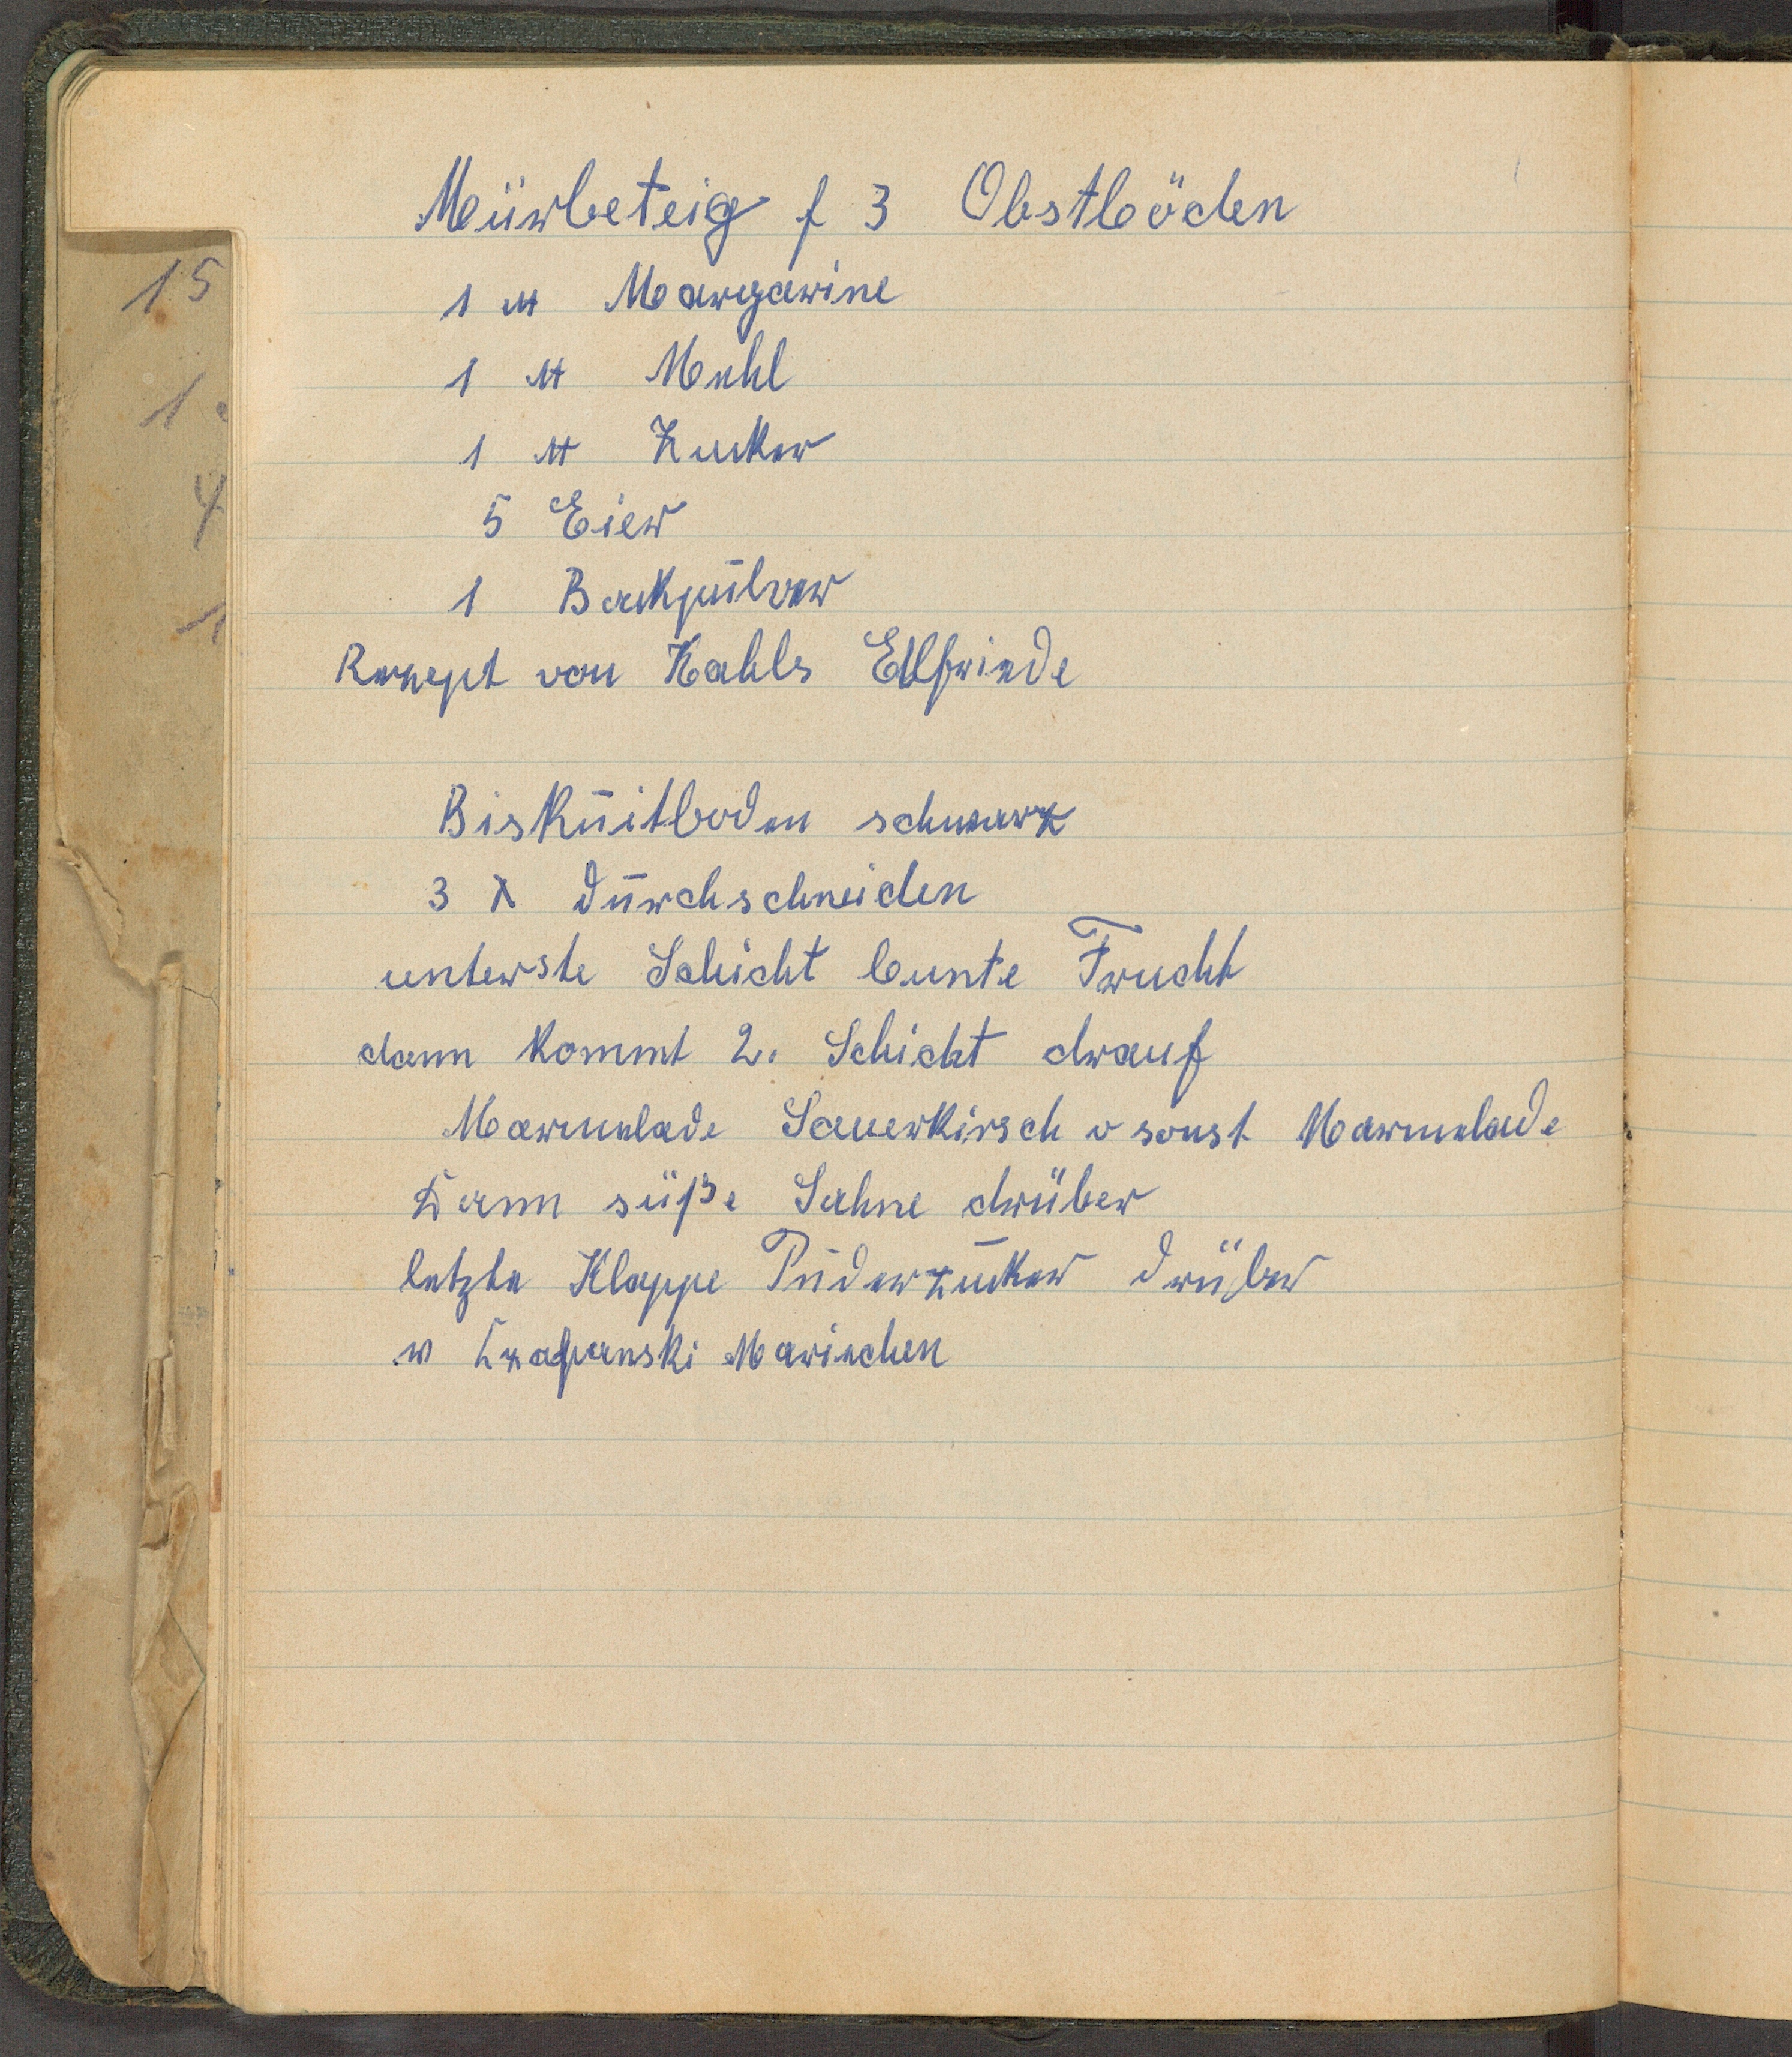 Mürbeteig f 3 Obstböden
1 ℔ Margarine
1 ℔ Mehl
1 ℔ Zucker
5 Eier
1 Backpulver
Rezept von Kahls Elfriede
Biskuitboden schwarz
3 X durchschneiden
unterste Schicht bunte Frucht
dann kommt 2. Schicht drauf
Marmelade Sauerkirsch o sonst Marmelade
Dann süße Sahne drüber
letzte Klappe Puderzucker drüber
v Mariechen
15
1
4
1